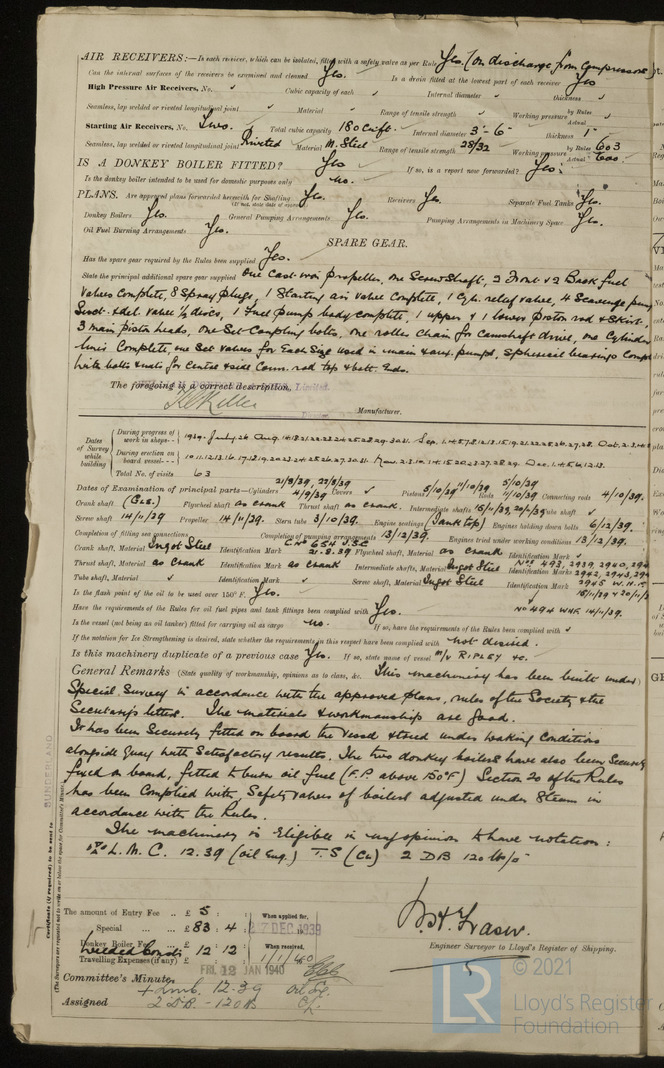 AIR RECEIVERS:— Is each receiver, which can be isolated, fitted with a safety valve as per Rule Yes. (On discharge from Compressors)
Can the internal surfaces of the receivers be examined and cleaned Yes. Is a drain fitted at the lowest part of each receiver Yes
High Pressure Air Receivers, No. Cubic capacity of each Internal diameter thickness
Seamless, lap welded or riveted longitudinal joint Material Range of tensile strength Working pressure by Rules Actual
Starting Air Receivers, No. Two. Total cubic capacity 180 Cu ft. Internal diameter 3'-6" thickness 1"
Seamless, lap welded or riveted longitudinal joint Riveted Material M. Steel Range of tensile strength 28/32 Working pressure by Rules 603 Actual 600.
IS A DONKEY BOILER FITTED? Yes If so, is a report now forwarded? Yes.
Is the donkey boiler intended to be used for domestic purposes only no.
PLANS. Are approved plans forwarded herewith for Shafting Yes. Receivers Yes. Separate Fuel Tanks Yes.
Donkey Boilers Yes. General Pumping Arrangements Yes. Pumping Arrangements in Machinery Space Yes.
Oil Fuel Burning Arrangements Yes.
SPARE GEAR.
Has the spare gear required by the Rules been supplied Yes.
State the principal additional spare gear supplied One Cast iron propeller, one Screw Shaft, 2 Front & 2 Back fuel
valves complete, 8 Spray plugs, 1 Starting air valve complete, 1 Cyl. relief valve, 4 Scavenge pump
Suct. & del. valve 1/2 discs, 1 Fuel pump body complete, 1 upper & 1 lower piston rod & skirt.
3 main piston heads, one Set Coupling bolts, one roller chain for Camshaft drive, one Cylinder
liner Complete, one Set valves for Each Size used in main & aux. pumps, Spherical bearings Comp
with bolts & nuts for Centre & side Conn. rod top & bott. Ends.
The foregoing is a correct description, Limited.
Manufacturer.
Dates of Survey while building
During progress of work in shops - - 1939. July 26 Aug. 14.18.21.22.23.24.25.28.29.30.31. Sep. 1.4.5.7.8.12.13.15.19.21.22.25.26.27.28. Oct. 2.3.4.5
During erection on board vessel - - - 10.11.12.13.16.17.18.19.20.23.24.25.26.27.30.31. Nov. 2.3.10.14.15.20.23.27.28.29. Dec. 1.4.5.6.12.13.
Total No. of visits 63
Dates of Examination of principal parts—Cylinders 21/8/39, 22/8/39 4/9/39 Covers Pistons 5/10/39 11/10/39 Rods 5/10/39 11/10/39 Connecting rods 4/10/39.
Crank shaft (Gls.) Flywheel shaft as crank Thrust shaft as crank. Intermediate shafts 15/11/39, 20/11/39 Tube shaft
Screw shaft 14/11/39 Propeller 14/11/39. Stern tube 3/10/39. Engine seatings (Tank top) Engines holding down bolts 6/12/39.
Completion of fitting sea connections Completion of pumping arrangements 13/12/39. Engines tried under working conditions 13/12/39.
Crank shaft, Material Ingot Steel Identification Mark C No 654 J.S.G 21.8.39 Flywheel shaft, Material as crank Identification Mark
Thrust shaft, Material as crank Identification Mark as crank Intermediate shafts, Material Ingot Steel Identification Marks Nos 493, 2939, 2940, 294 2942, 2943, 294
Tube shaft, Material Identification Mark Screw shaft, Material Ingot Steel Identification Mark 2945 W.H.F. 15/11/39 & 20/11/3
Is the flash point of the oil to be used over 150° F. Yes. No 494 WHF 14/11/39.
Have the requirements of the Rules for oil fuel pipes and tank fittings been complied with Yes.
Is the vessel (not being an oil tanker) fitted for carrying oil as cargo no. If so, have the requirements of the Rules been complied with
If the notation for Ice Strengthening is desired, state whether the requirements in this respect have been complied with not desired.
Is this machinery duplicate of a previous case Yes. If so, state name of vessel m/v RIPLEY &c.
General Remarks (State quality of workmanship, opinions as to class, &c. This machinery has been built under
Special Survey in accordance with the approved plans, rules of the Society & the
Secretary's letters. The materials & workmanship are good.
It has been Securely fitted on board the vessel & tried under working Conditions
alongside Quay with Satisfactory results. The two donkey boilers have also been Securely
fixed on board, fitted to burn oil fuel (F.P. above 150°F) Section 20 of the Rules
has been Complied with, Safety valves of boilers adjusted under Steam in
accordance with the Rules.
The machinery is Eligible in my opinion to have notation:
+ L.M.C. 12.39 (Oil Eng.) T.S (CL) 2 DB 120 lb/□"
SUNDERLAND
Certificate (if required) to be sent to
(The Surveyors are requested not to write on or below the space for Committee's Minute.)
The amount of Entry Fee .. £ 5 : :
Special .. £ 83 : 4 :
Donkey Boiler Fee
Welded Conds 12 : 12 :
Travelling Expenses (if any) £ : :
When applied for,
27 DEC 1939
When received,
1/1/40
W.H. Fraser.
Engineer Surveyor to Lloyd's Register of Shipping.
FRI. 12 JAN 1940
Committee's Minute
Assigned + Lmb. 12.39 Oil Eng.
2 DB - 120 lb CL.
© 2021
LR
Lloyd's Register
Foundation